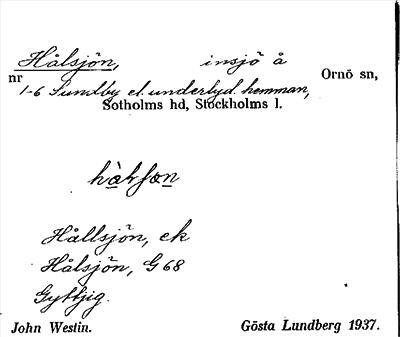 Hålsjön, insjö å Ornö sn,
nr 1-6 Sundby el. underlyd. hemman,
Sotholms hd, Stockholms l.
Hållsjön, ek
Hålsjön, G 68
Gyttjig.
John Westin. Gösta Lundberg 1937.